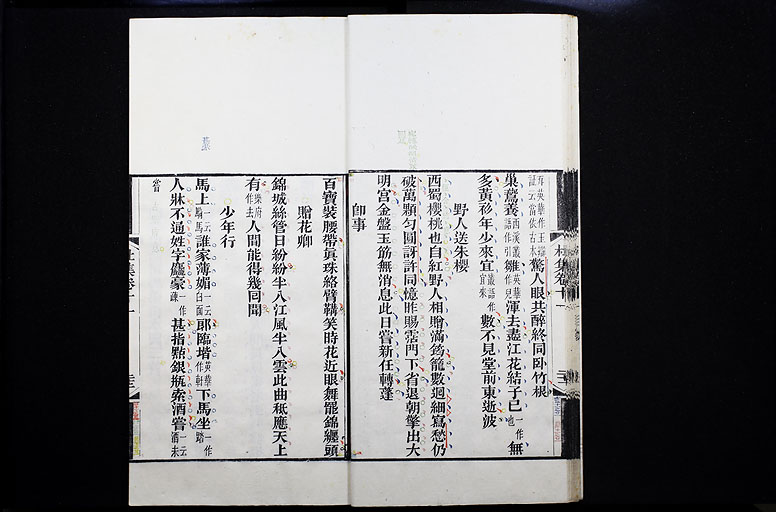 驚人眼共醉終同卧竹根
巢鷰養雛渾去盡江花結子已無
多黃衫年少來宜數不見堂前東逝波
野人送朱櫻
西蜀櫻桃也自紅野人相贈滿筠籠數迴細寫愁仍
破萬顆勻圓訝許同憶昨賜霑門下省退朝擎出大
明宮金盤玉筯無消息此日嘗新任轉蓬
卽事
百寶裝腰帶真珠絡臂鞲笑時花近眼舞罷錦纏頭
贈花卿
錦城絲管日紛紛半入江風半入雲此曲秪應天上
有樂府作去人間能得幾回聞
少年行
馬上一云騎馬誰家薄媚一云白面郎臨堦英華作軒下馬坐一作踏
人牀不通姓字麤豪一作疎甚指點銀瓶索酒嘗一云酒未
嘗
杜集卷十一